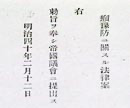 癩豫防ニ關スル法律案
右
勅旨ヲ奉シ帝國議會ニ提出ス
明治四十年二月十二日